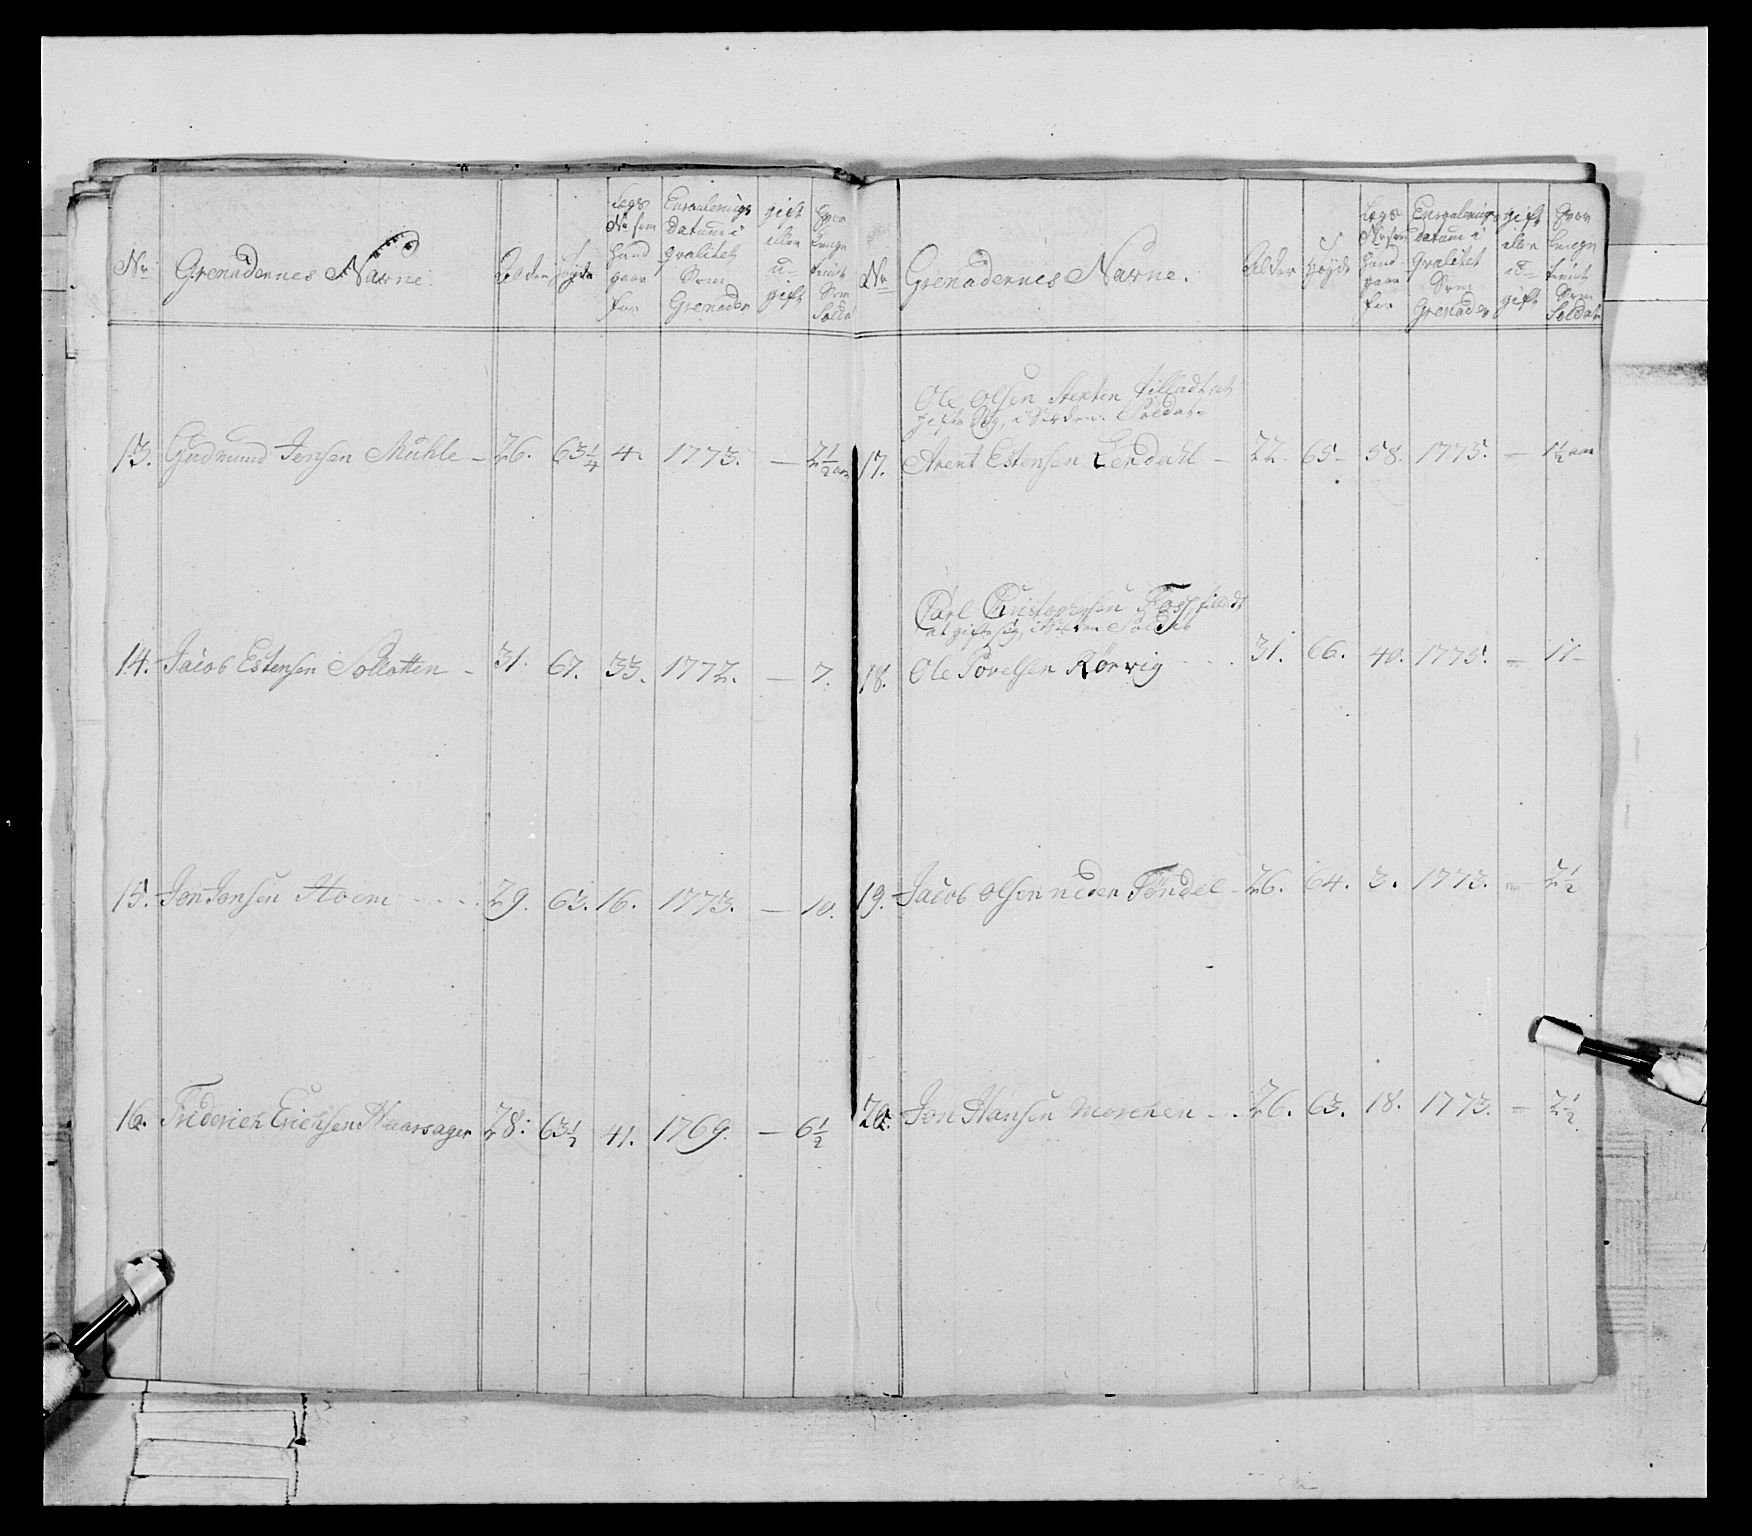 No
Grenadernes Navne.
Alder
Høyde
Legs
No som
hand
gaar
for
Enroulerings
datum i
qvalitet
Som
Grenader
gift
eller
u-
gift
hvor
længe
tient
Som
Soldat
13. Gudmund Jensen Mühle – 26. 63 1/4 4. 1773. — 2 1/2 aar
14. Jacob Estensen Solliatten – 31. 67. 33. 1772. — 7.
15. Jon Jonsen Hoem - - - - 29. 63. 16. 1773. — 10.
16. Friderich Erichsen Haarsager 28. 63 1/2 41. 1769. — 6 1/2
No
Grenadernes Navne.
Alder
Høyde
Legs
No som
hand
gaar
for
Enroulerings
datum i
qvalitet
Som
Grenader
gift
eller
u-
gift
hvor
længe
tient
Som
Soldat
Ole Olsen tilladt at
gifte Sig, i Steden Soldat
17. Arent Estensen Lerdahl – 22. 65 – 58. 1775. — 1 1/2 aar
Carl Christophersen Foss, tilladt
at gifte sig, i Steden Soldat
18. Ole Povelsen Rörvig - - - 31. 66. 40. 1775. — 11 –
19. Jacob Olsen neder Tøndel – 26. 64. 3. 1773. — 2 1/2
20. Jon Hansen Merchen - . 26. 63. 18. 1773. — 2 1/2